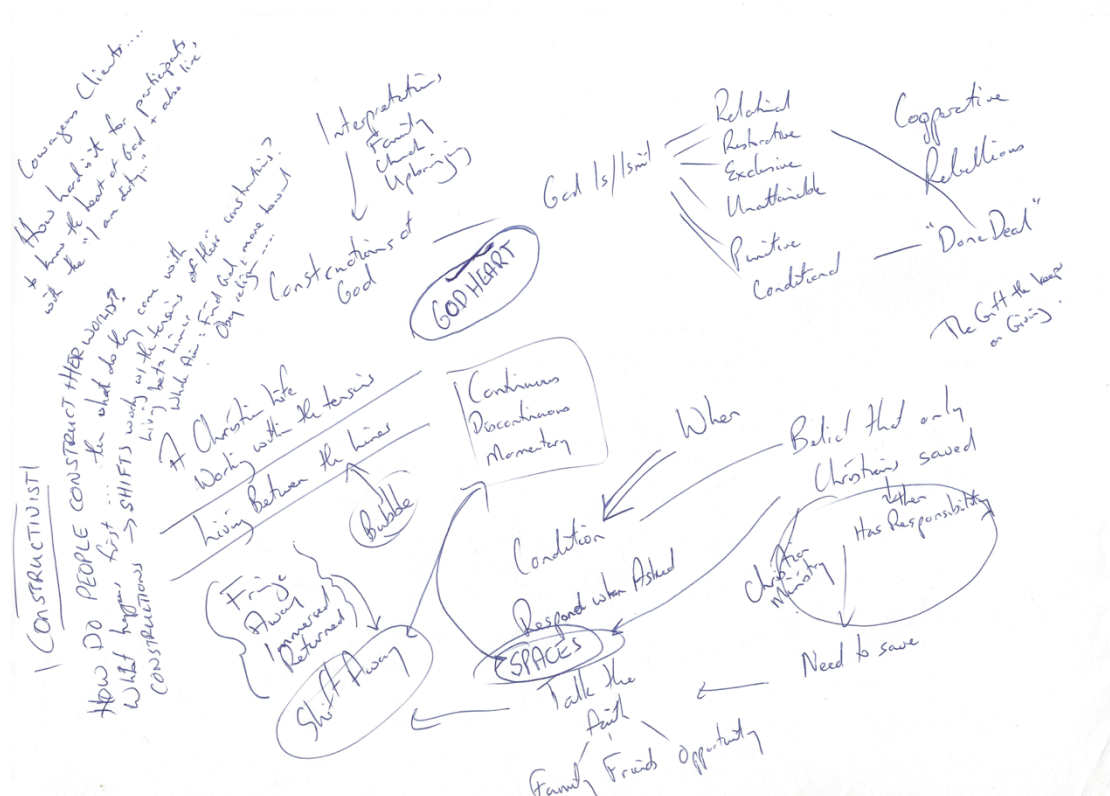 Courageous Clients.....
How hard is it for participants
to know the heart of God + also live
with the "I am dirty..."
| CONSTRUCTIVIST |
HOW DO PEOPLE CONSTRUCT THEIR WORLD?
What happens first ... then what do they
CONSTRUCTIONS → SHIFTS
with the tensions of their constructions?
Interpretations
Family
Church
Upbringing
Constructions of
God
GOD HEART
God Is/Isn't
Relational
Restorative
Exclusive
Unattainable
Punitive
Conditional
Cooperative
Rebellious
"Done Deal"
The Gift the keeps
on Giving.
A Christian Life
Working within the tensions
Living Between the Lines
Bubble
Continuous
Discontinuous
Momentary
When
Belief that only
Christians saved
then
Has Responsibility
Christian
Ministry
Need to save
Condition
Respond when Asked
SPACES
Talk the
Faith
Family Friends Opportunity
Fringe
Away
Immersed
Returned
Shift Away